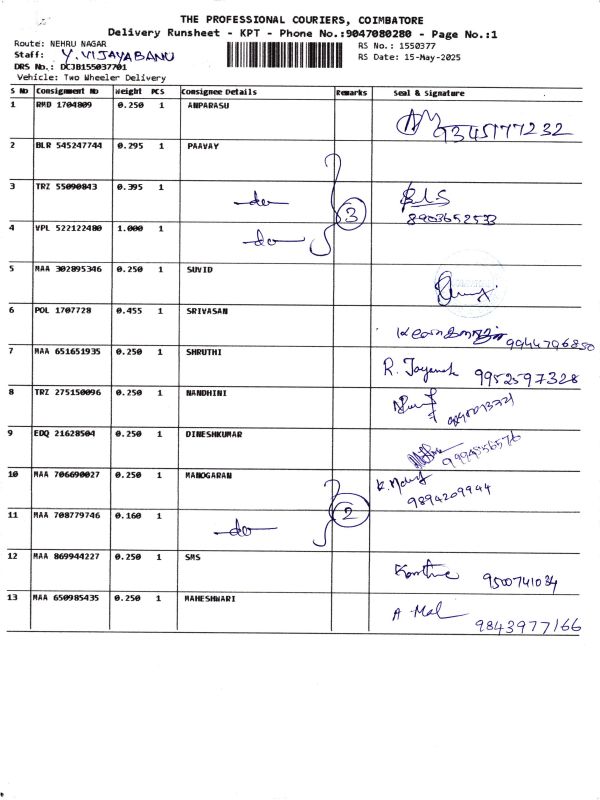 THE PROFESSIONAL COURIERS, COIMBATORE
Delivery Runsheet - KPT - Phone No.:9047080280 - Page No.:1
Route: NEHRU NAGAR
RS No.: 1550377
Staff: Y. VIJAYABANU
RS Date: 15-May-2025
DRS No.: DCJB155037701
Vehicle: Two Wheeler Delivery
S No Consignment No Weight PCS Consignee Details Remarks Seal & Signature
1 RMD 1704809 0.250 1 ANPARASU 9345177232
2 BLR 545247744 0.295 1 PAAVAY
3 TRZ 55090843 0.395 1 -do- 3 8903652533
4 VPL 522122480 1.000 1 -do-
5 MAA 302895346 0.250 1 SUVID
6 POL 1707728 0.455 1 SRIVASAN 9944796850
7 MAA 651651935 0.250 1 SHRUTHI R. Jayanth 9952597328
8 TRZ 275150096 0.250 1 NANDHINI
9 EDQ 21628504 0.250 1 DINESHKUMAR 9994556576
10 MAA 706690027 0.250 1 MANOGARAN 9894209944
11 MAA 708779746 0.160 1 -do- 2
12 MAA 869944227 0.250 1 SMS 9500741034
13 MAA 650985435 0.250 1 MAHESHWARI A Mal 9843977166